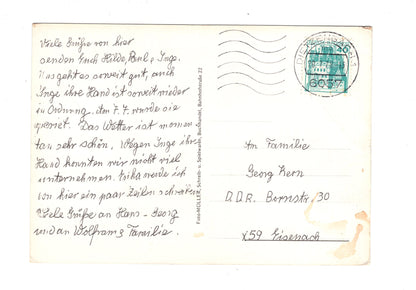 Viele Grüße von hier
senden Euch Hilde, Paul, Inge.
Uns geht es soweit gut, auch
Inge ihre Hand ist soweit wieder
in Ordnung. Am 7.7. wurde sie
Das Wetter ist momen
tan sehr schön. Wegen Inge ihre
Hand konnten wir nicht viel
unternehmen. wir
von hier ein paar Zeilen schreiben
Viele Grüße an Hans-Georg
und an Wolframs Familie.
Foto-MÜLLER, Schreib- u. Spielwaren, Buchhandel, Bahnhofstraße 22
6057
An Familie
Georg Kern
D.D.R. Bornstr. 30
X59 Eisenach